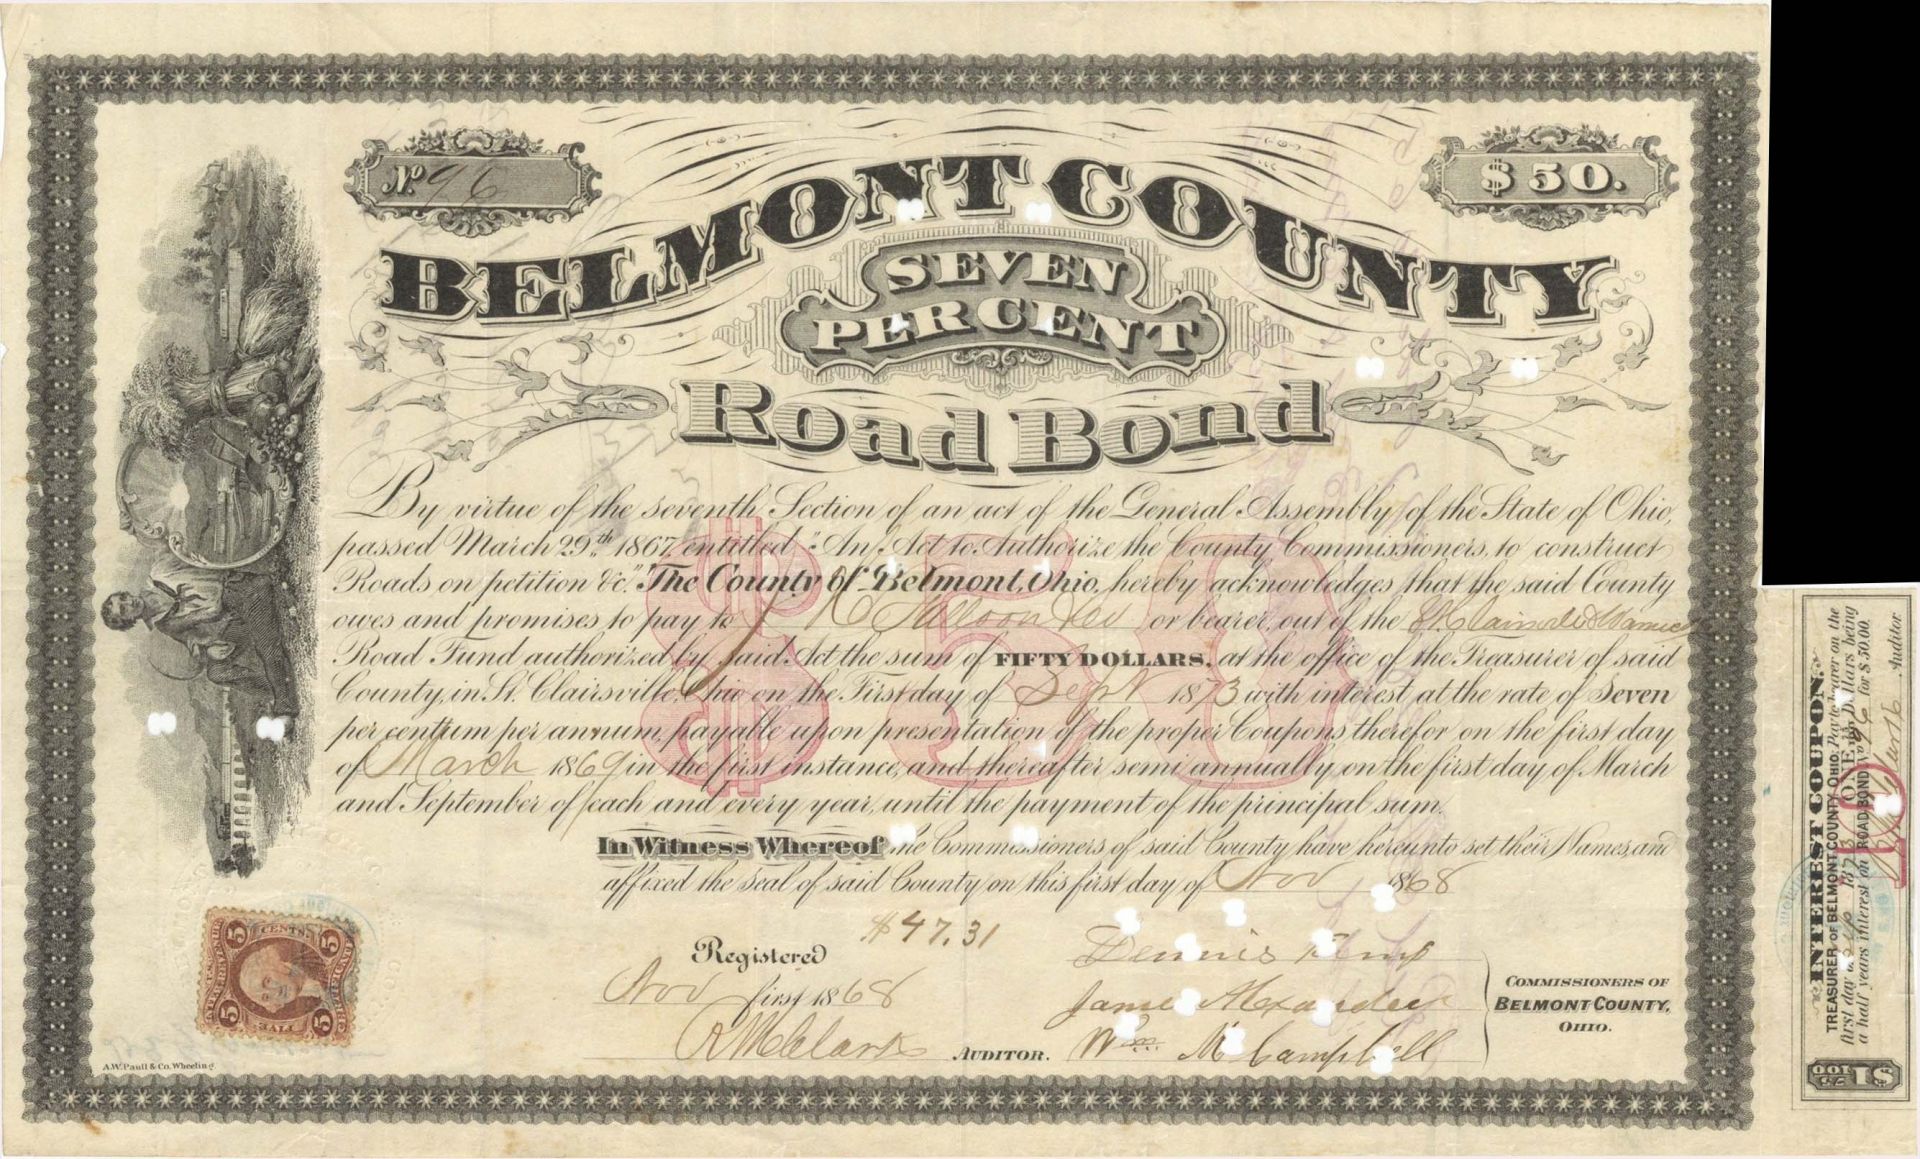 No 96
$50.
BELMONT COUNTY
SEVEN
PERCENT
Road Bond
$50
By virtue of the seventh Section of an act of the General Assembly of the State of Ohio,
passed March 29th 1867, entitled "An Act to Authorize the County Commissioners, to construct
Roads on petition &c." The County of Belmont, Ohio, hereby acknowledges that the said County
owes and promises to pay to or bearer, out of the
Road Fund authorized by said Act the sum of FIFTY DOLLARS, at the office of the Treasurer of said
County, in St. Clairsville, Ohio on the First day of Sept 1873 with interest at the rate of Seven
per centum per annum, payable upon presentation of the proper Coupons therefor on the first day
of March 1869 in the first instance, and thereafter semi annually on the first day of March
and September of each and every year, until the payment of the principal sum.
In Witness Whereof the Commissioners of said County have hereunto set their Names, and
affixed the seal of said County on this first day of Nov 1868
$47.31
Registered
Nov first 1868
AUDITOR.
Dennis Kemp
James Alexander
Wm. M. Campbell
COMMISSIONERS OF
BELMONT COUNTY,
OHIO.
5 CENTS 5
U.S. INTER. REV.
5 FIVE 5
A.W. Paull & Co. Wheeling
INTEREST COUPON.
TREASURER OF BELMONT COUNTY, OHIO: Pay to bearer on the
first day of Sep 1873 ONE 75/100 Dollars being
a half years interest on ROAD BOND No 96 for $50.00.
Auditor
$1 75/100